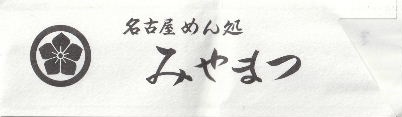 名古屋めん処
みやまつ